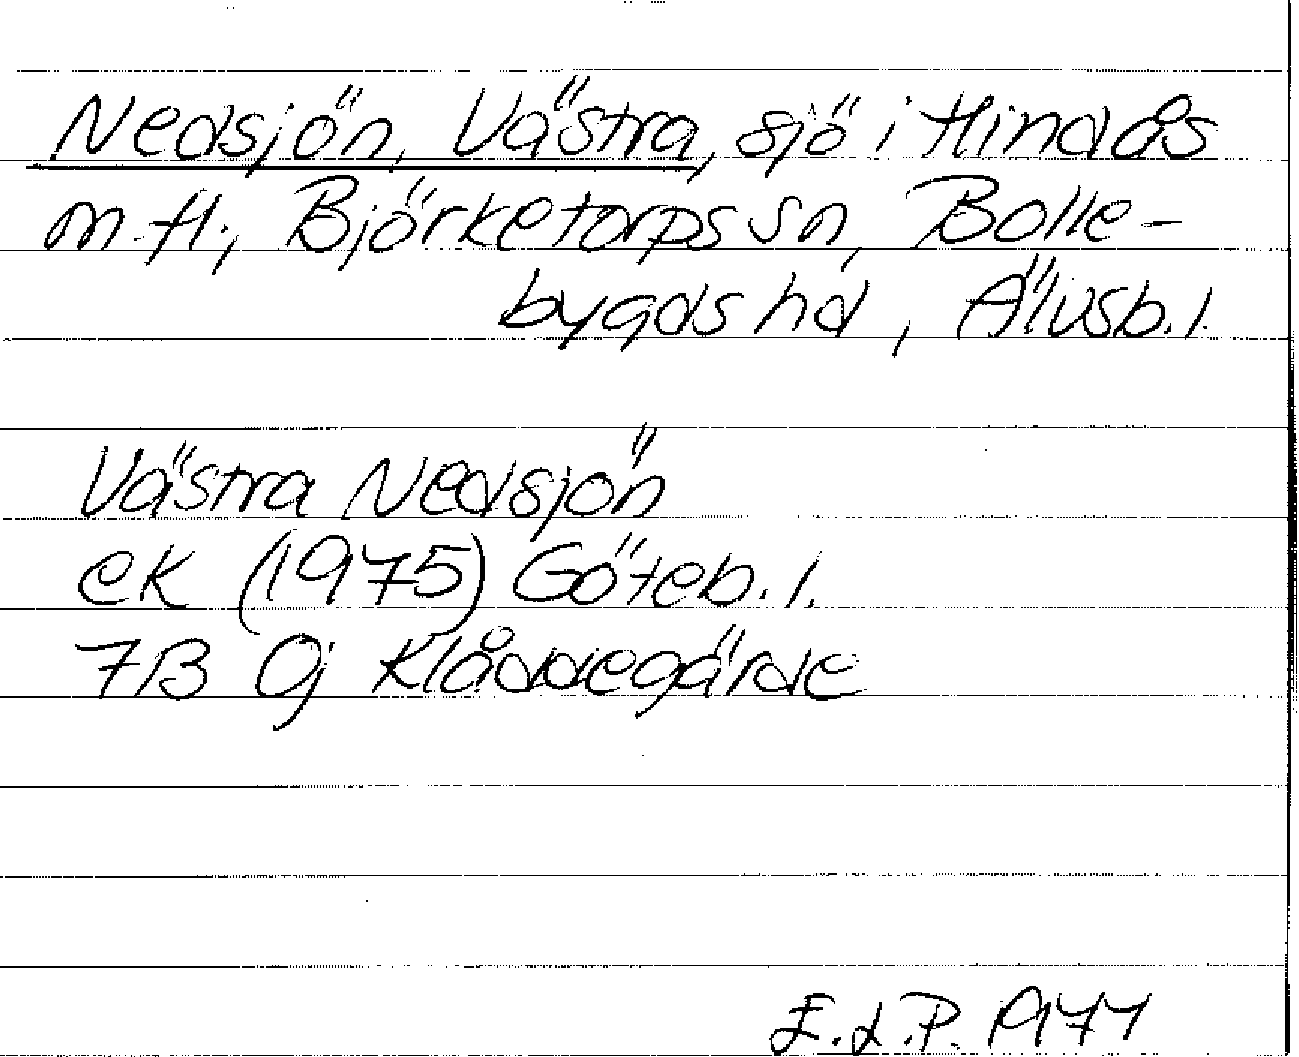 Nedsjön, Västra, sjö i Hindås
m.fl., Björketorps sn, Bolle-
bygds hd, Älvsb.l.
Västra Nedsjön
ek (1975) Göteb.l.
7B 0j Klåddegärde
E.L.P. 1977